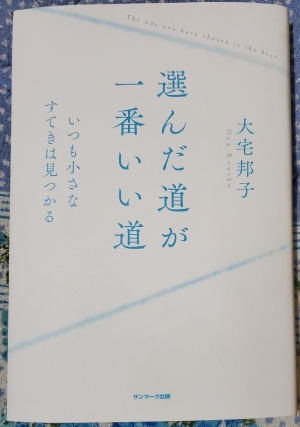 The way you have chosen is the best
選んだ道が
一番いい道
いつも小さな
すてきは見つかる
大宅邦子
Oya Kuniko
サンマーク出版